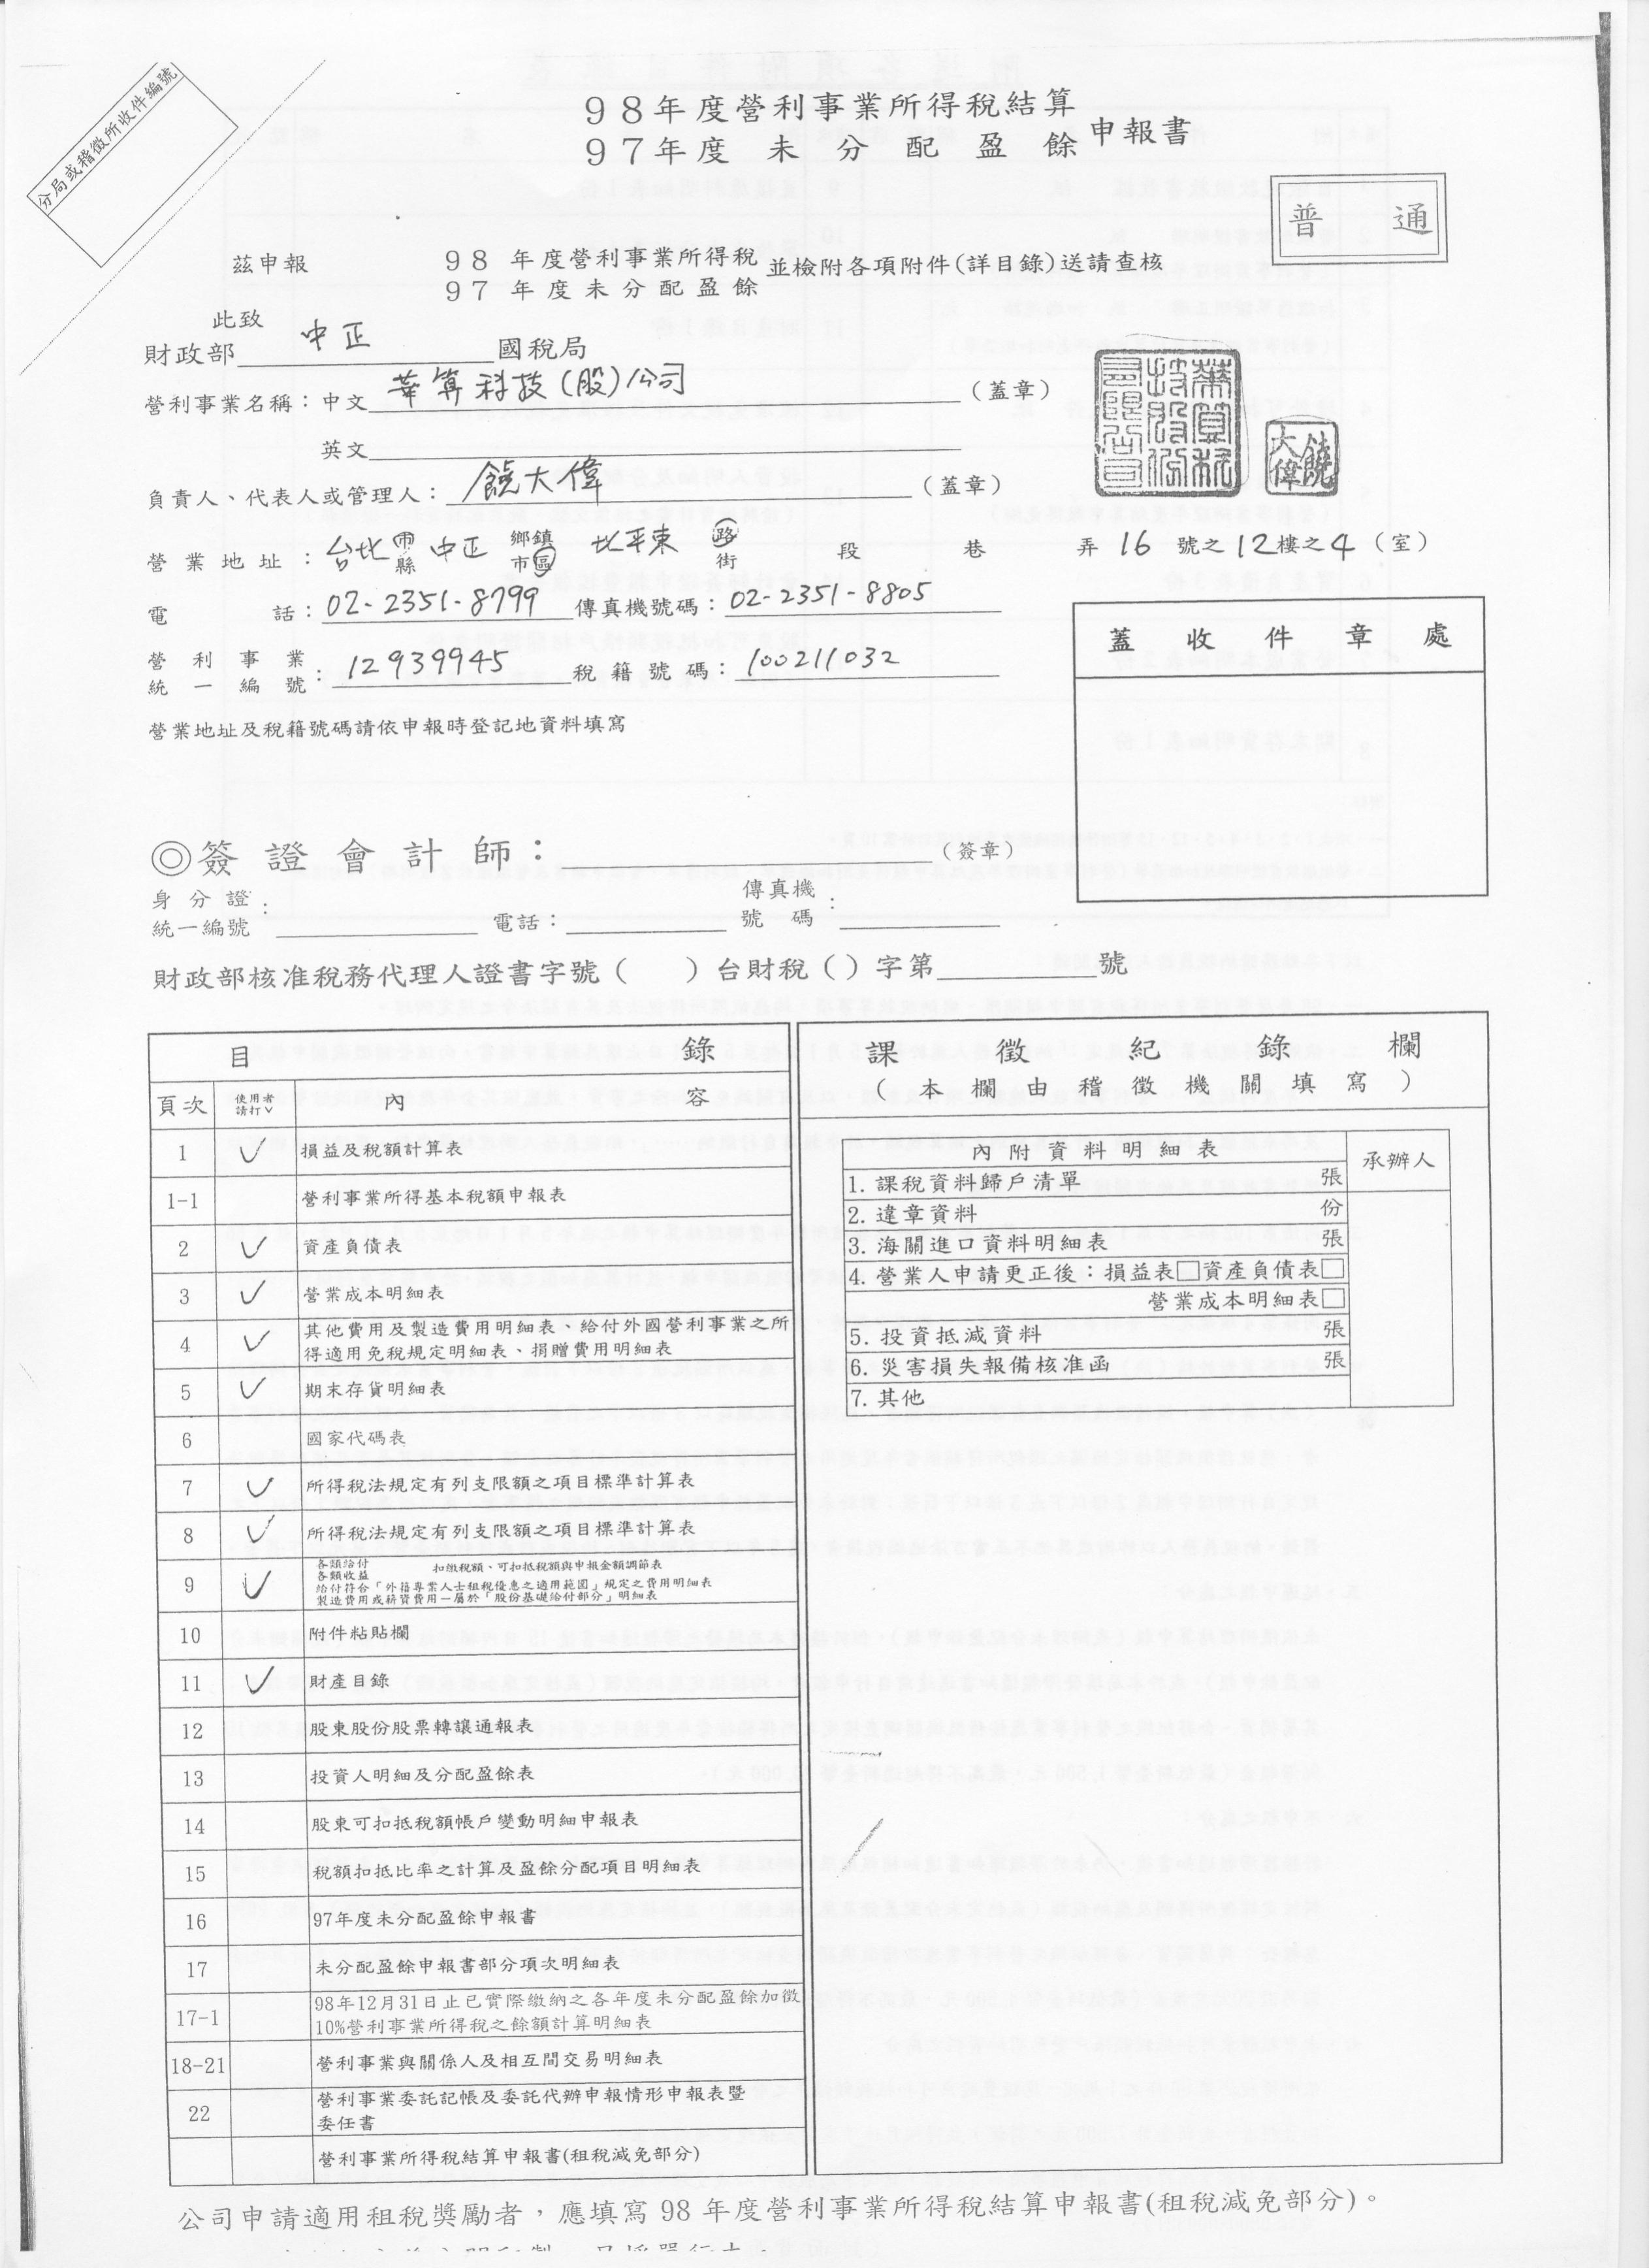 分局或稽徵所收件編號
98年度營利事業所得稅結算
97年度未分配盈餘申報書
普通
茲申報
98 年度營利事業所得稅
97 年度未分配盈餘
並檢附各項附件(詳目錄)送請查核
此致
財政部 中正 國稅局
營利事業名稱：中文 華算科技(股)公司 (蓋章)
英文
負責人、代表人或管理人： 饒大偉 (蓋章)
營業地址：台北市縣 中正 鄉鎮市區 北平東 路街 段 巷 弄 16 號之 12 樓之 4 (室)
電話：02-2351-8799 傳真機號碼：02-2351-8805
營利事業統一編號：12939945 稅籍號碼：100211032
營業地址及稅籍號碼請依申報時登記地資料填寫
蓋收件章處
◎簽證會計師： (簽章)
身分證統一編號： 電話： 傳真機號碼：
財政部核准稅務代理人證書字號 ( ) 台財稅 ( ) 字第 號
目錄
頁次 使用者請打V 內容
1 ✓ 損益及稅額計算表
1-1 營利事業所得基本稅額申報表
2 ✓ 資產負債表
3 ✓ 營業成本明細表
4 ✓ 其他費用及製造費用明細表、給付外國營利事業之所
得適用免稅規定明細表、捐贈費用明細表
5 ✓ 期末存貨明細表
6 國家代碼表
7 ✓ 所得稅法規定有列支限額之項目標準計算表
8 ✓ 所得稅法規定有列支限額之項目標準計算表
9 ✓ 各類給付
各類收益 扣繳稅額、可扣抵稅額與申報金額調節表
給付符合「外籍專業人士租稅優惠之適用範圍」規定之費用明細表
製造費用或薪資費用—屬於「股份基礎給付部分」明細表
10 附件粘貼欄
11 ✓ 財產目錄
12 股東股份股票轉讓通報表
13 投資人明細及分配盈餘表
14 股東可扣抵稅額帳戶變動明細申報表
15 稅額扣抵比率之計算及盈餘分配項目明細表
16 97年度未分配盈餘申報書
17 未分配盈餘申報書部分項次明細表
17-1 98年12月31日止已實際繳納之各年度未分配盈餘加徵
10%營利事業所得稅之餘額計算明細表
18-21 營利事業與關係人及相互間交易明細表
22 營利事業委託記帳及委託代辦申報情形申報表暨
委任書
營利事業所得稅結算申報書(租稅減免部分)
課徵紀錄欄
(本欄由稽徵機關填寫)
內附資料明細表 承辦人
1. 課稅資料歸戶清單 張
2. 違章資料 份
3. 海關進口資料明細表 張
4. 營業人申請更正後：損益表□資產負債表□
營業成本明細表□
5. 投資抵減資料 張
6. 災害損失報備核准函 張
7. 其他
公司申請適用租稅獎勵者，應填寫 98 年度營利事業所得稅結算申報書(租稅減免部分)。